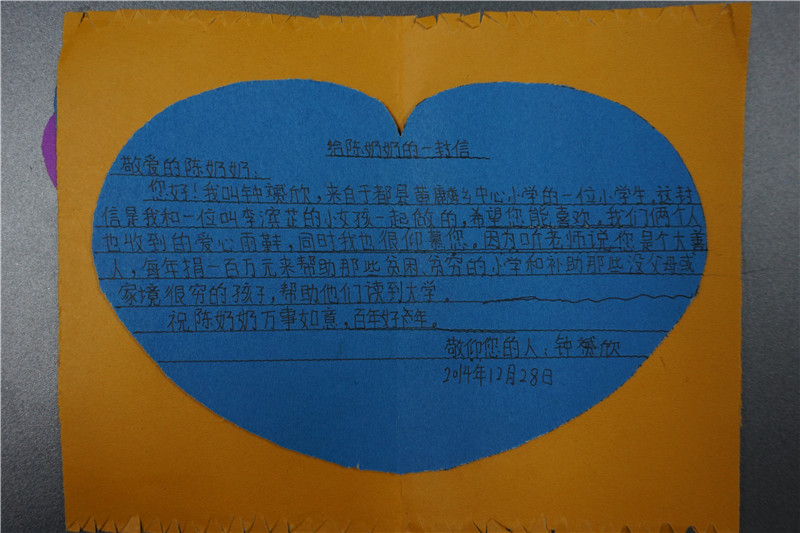 给陈奶奶的一封信
敬爱的陈奶奶:
您好!我叫钟欣,来自于都县黄麟乡中心小学的一位小学生,这封
信是我和一位叫李滨芷的小女孩一起做的,希望您能喜欢,我们俩个人
也收到的爱心雨鞋,同时我也很仰慕您,因为听老师说您是个大善
人,每年捐一百万元来帮助那些贫困、贫穷的小学和补助那些没父母或
家境很穷的孩子,帮助他们读到大学。
祝陈奶奶万事如意,百年好年。
敬仰您的人:钟欣
2014年12月28日